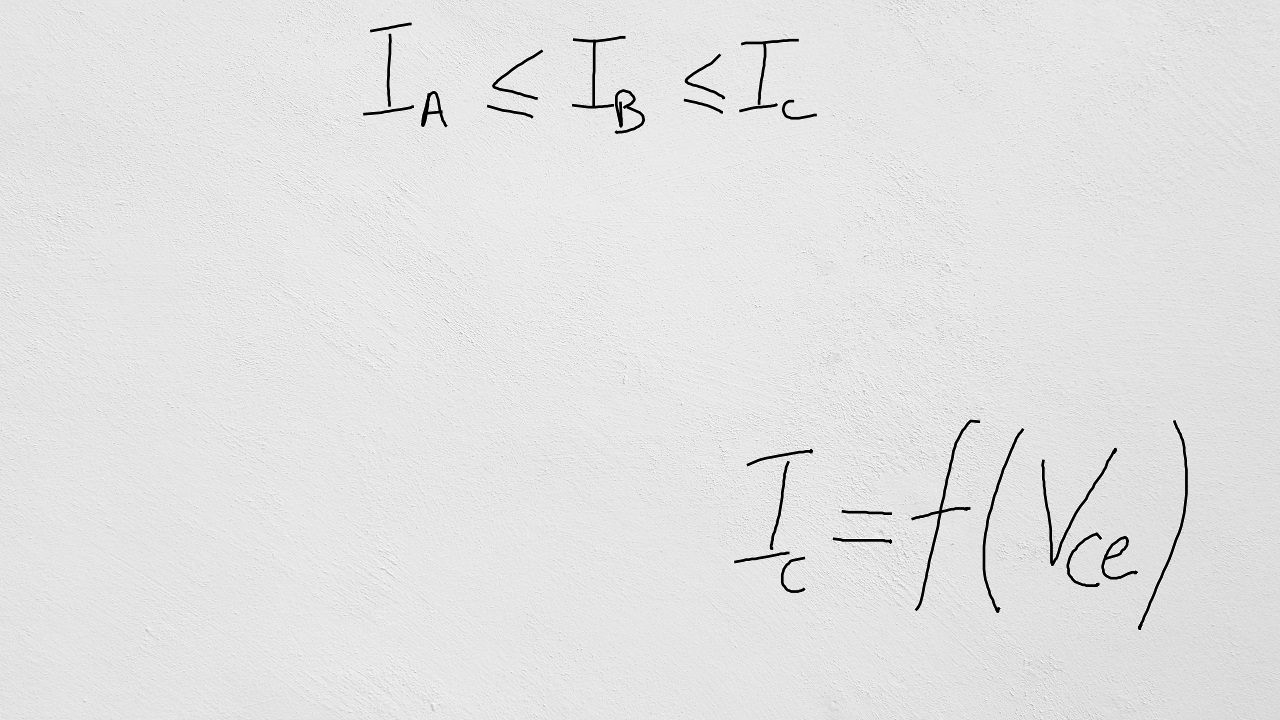 I_A ≤ I_B ≤ I_C
I_C = f(V_ce)